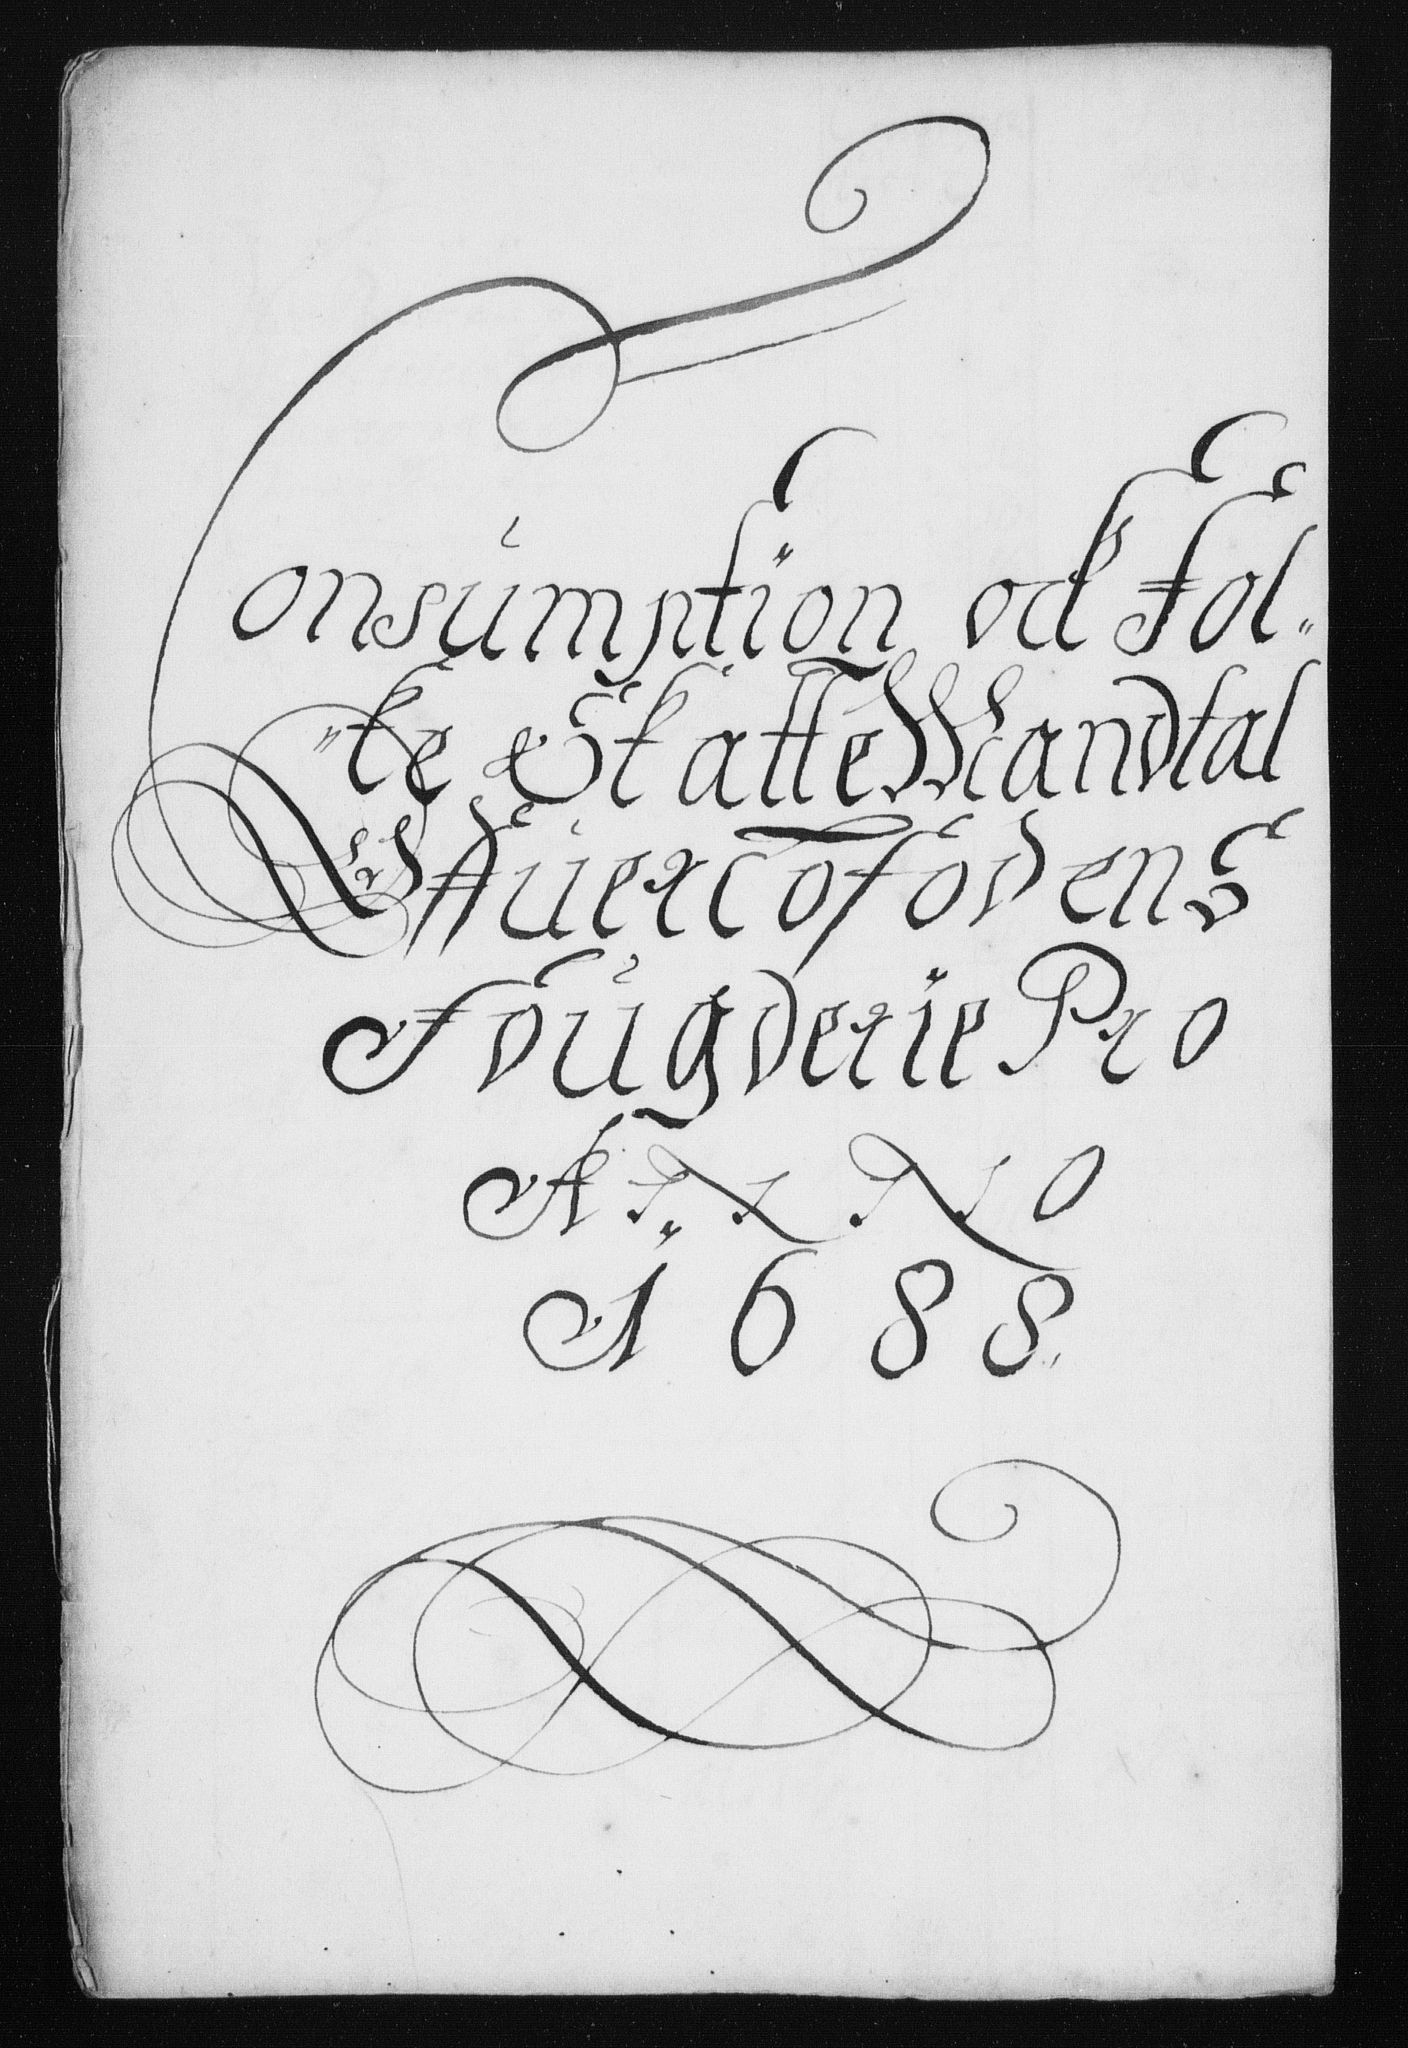 Consumption och Fol-
-ke Skatte Mandtal
Offuer Lofodens
Fougderie Pro
ANNO
1688.